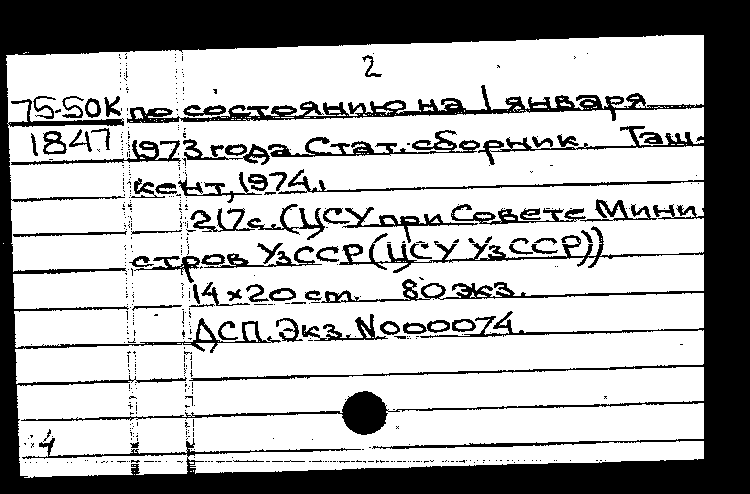 2
75-50К по состоянию на 1 января
1847 1973 года. Стат. сборник. Таш-
кент, 1974.
217 с. (ЦСУ при Совете Мини-
стров УзССР (ЦСУ УзССР))
14×20 cm. 80 экз.
ДСП. Экз. N000074.
4